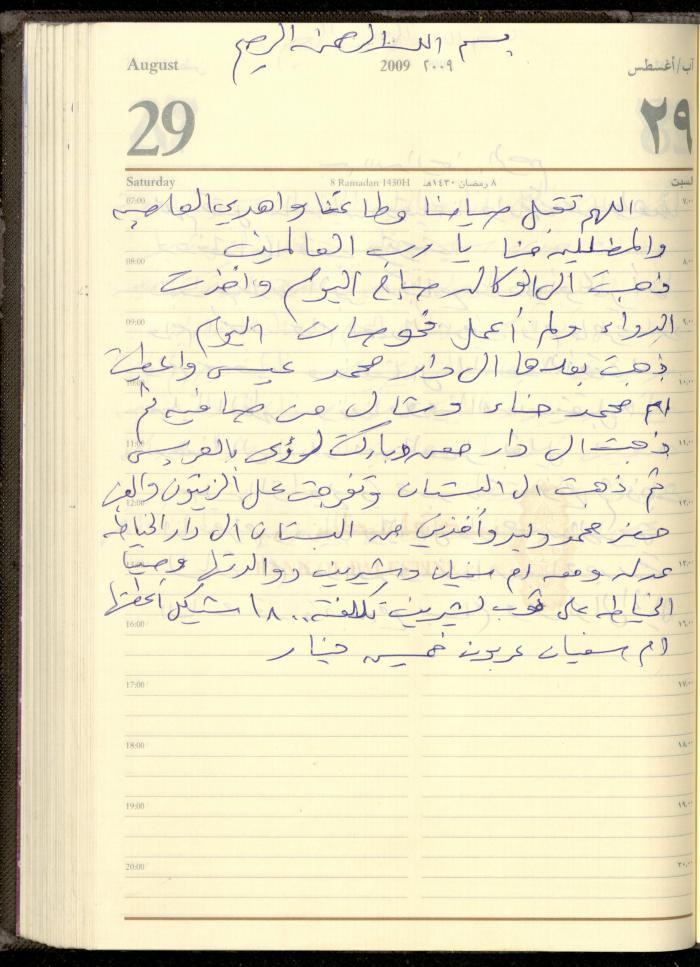 بسم الله الرحمن الرحيم
August 2009 ٢٠٠٩ آب/أغسطس
29 ٢٩
Saturday 8 Ramadan 1430H ٨ رمضان ١٤٣٠هـ السبت
07:00 اللهم تقبل صيامنا وطاعتنا واهدي العاصيه ٧:٠٠
والمضلليه منا يا رب العالمين
08:00 ذهبت الى الوكاله صباح اليوم واخذت ٨:٠٠
09:00 الدواء ولم أعمل فحوصات اليوم ٩:٠٠
ذهبت بعدها ال دار محمد عيسى واعطيت
10:00 ام محمد حناء وشال من صافيه ثم ١٠:٠٠
11:00 ذهبت ال دار معن وباركت لرؤى بالعريس ١١:٠٠
12:00 ثم ذهبت ال البستان وتفرجت على الزيتون والعنب ١٢:٠٠
حضر محمد وليد وأخذني من البستان ال دار الخياطه
عدله ومعه ام سفيان وشيرين ووالدتها وصينا ١٣:٠٠
الخياطه على ثوب لشيرين تكلفته ١٨٠٠ شيكل أعطتها
16:00 ام سفيان عربون خمسين دينار ١٦:٠٠
17:00 ١٧:٠٠
18:00 ١٨:٠٠
19:00 ١٩:٠٠
20:00 ٢٠:٠٠